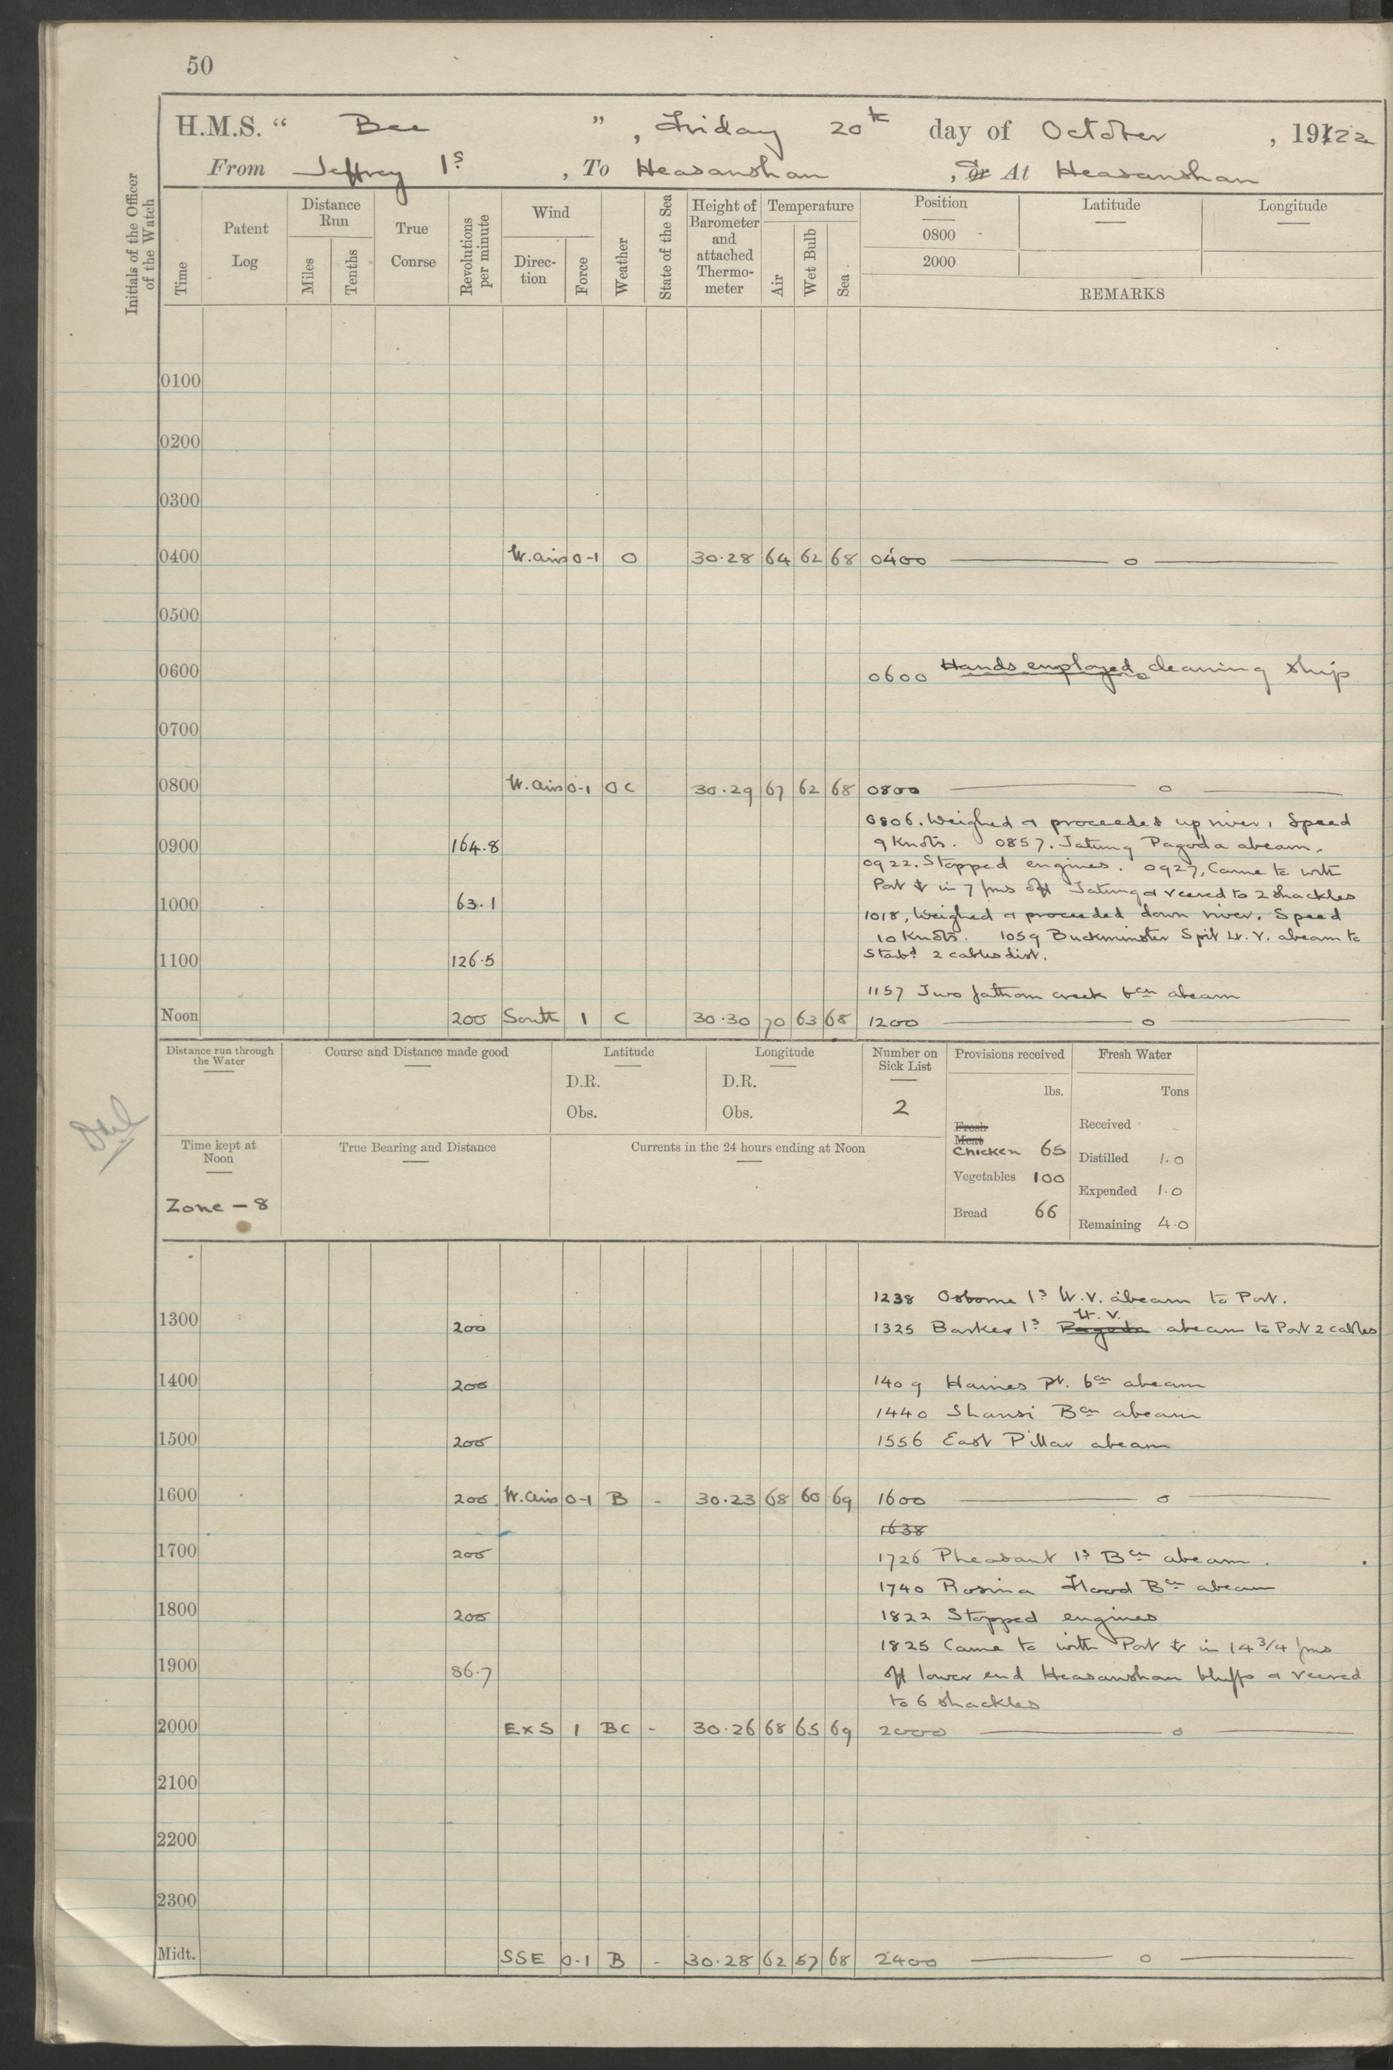 50
H.M.S. “ Bee ” , Friday 20th day of October , 1922
From Jeffrey Is , To Heasanshan , Or At Heasanshan
Initials of the Officer of the Watch
Time
Patent Log
Distance Run
Miles
Tenths
True Conrse
Revolutions per minute
Wind
Direc-tion
Force
Weather
State of the Sea
Height of Barometer and attached Thermo-meter
Temperature
Air
Wet Bulb
Sea
Position
0800
2000
Latitude
Longitude
REMARKS
0100
0200
0300
0400 W. airs 0-1 O 30.28 64 62 68 0400 — o —
0500
0600 0600 Hands employed cleaning ship
0700
0800 W. airs 0-1 OC 30.29 67 62 68 0800 — o —
0806. Weighed & proceeded up river, Speed
0900 164.8 9 Knots. 0857. Tatung Pagoda abeam.
0922. Stopped engines. 0927, Came to with
Port ⚓ in 7 fms off Tatung & veered to 2 shackles
1000 63.1
1018, Weighed & proceeded down river. Speed
10 Knots. 1059 Buckminster Spit Lt. V. abeam to
1100 126.5 Starbd 2 cables dist.
1157 Two fathom creek bcn abeam
Noon 200 South 1 C 30.30 70 63 68 1200 — o —
Distance run through the Water
Course and Distance made good
Latitude
D.R.
Obs.
Longitude
D.R.
Obs.
Number on Sick List
2
Provisions received
lbs.
Fresh Meat
Chicken 65
Vegetables 100
Bread 66
Fresh Water
Tons
Received -
Distilled 1.0
Expended 1.0
Remaining 4.0
Time kept at Noon
Zone - 8
True Bearing and Distance
Currents in the 24 hours ending at Noon
1238 Osborne Is W.V. abeam to Port.
Lt. V.
1300 200 1325 Barker Is Pagoda abeam to Port 2 cables
1400 200 1409 Haines Pt. bcn abeam
1440 Shansi Bcn abeam
1500 200 1556 East Pillar abeam
1600 200 W. airs 0-1 B - 30.23 68 60 69 1600 — o —
1638
1700 200 1726 Pheasant Is Bcn abeam.
1740 Rosina Flood Bcn abeam
1800 200 1822 Stopped engines
1825 Came to with Port ⚓ in 14 3/4 fms
1900 86.7 off lower end Heasanshan bluffs & veered
to 6 shackles
2000 ExS 1 BC - 30.26 68 65 69 2000 — o —
2100
2200
2300
Midt. SSE 0-1 B - 30.28 62 57 68 2400 — o —